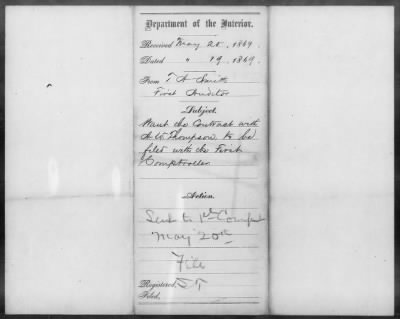 Department of the Interior.
Received May 20, 1869.
Dated " 19, 1869.
From T A Smith
First Auditor
Subject.
Want the Contract with
Thompson to be
filed with the First
Comptroller.
Action.
Sent to 1st Compt
May 20th
File
Registered
Filed,